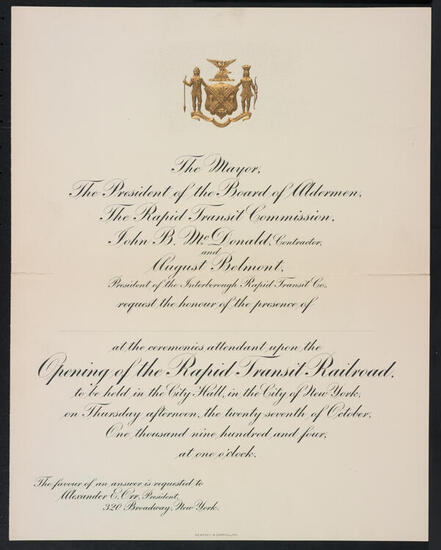 The Mayor,
The President of the Board of Aldermen,
The Rapid Transit Commission,
John B. McDonald, Contractor,
and
August Belmont,
President of the Interborough Rapid Transit Co.,
request the honour of the presence of
at the ceremonies attendant upon the
Opening of the Rapid Transit Railroad,
to be held in the City Hall, in the City of New York,
on Thursday afternoon, the twenty seventh of October,
One thousand nine hundred and four,
at one o'clock.
The favour of an answer is requested to
Alexander E. Orr, President,
320 Broadway, New York.